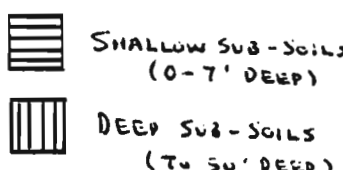 SHALLOW SUB-SOILS
(0-7' DEEP)
DEEP SUB-SOILS
(TO 50' DEEP)